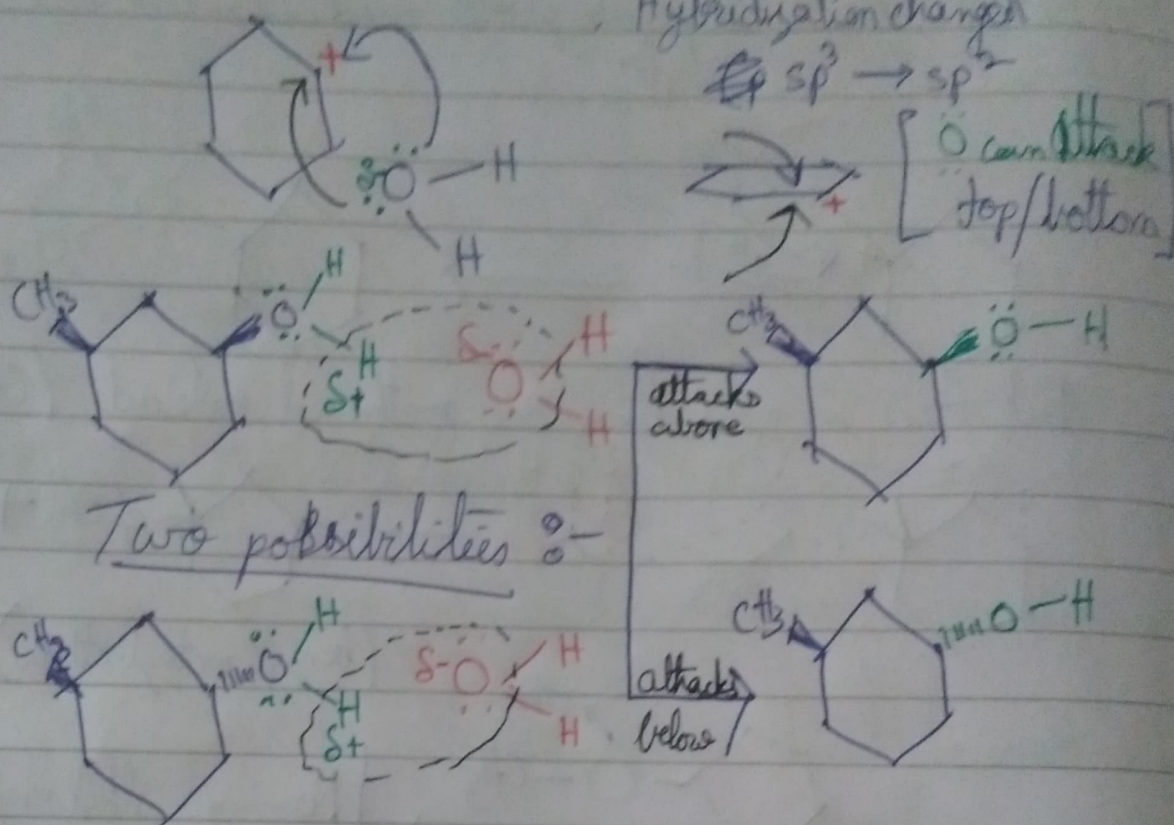 Hybridization changes
sp³ → sp²
+
Ö can Attack
top/bottom
+
O — H
H
CH3
O
H
H
δ+
δ-
O
H
H
attacks
above
CH3
O — H
Two possibilities :-
CH3
O
H
H
δ+
δ-
O
H
H
attacks
below
CH3
O — H